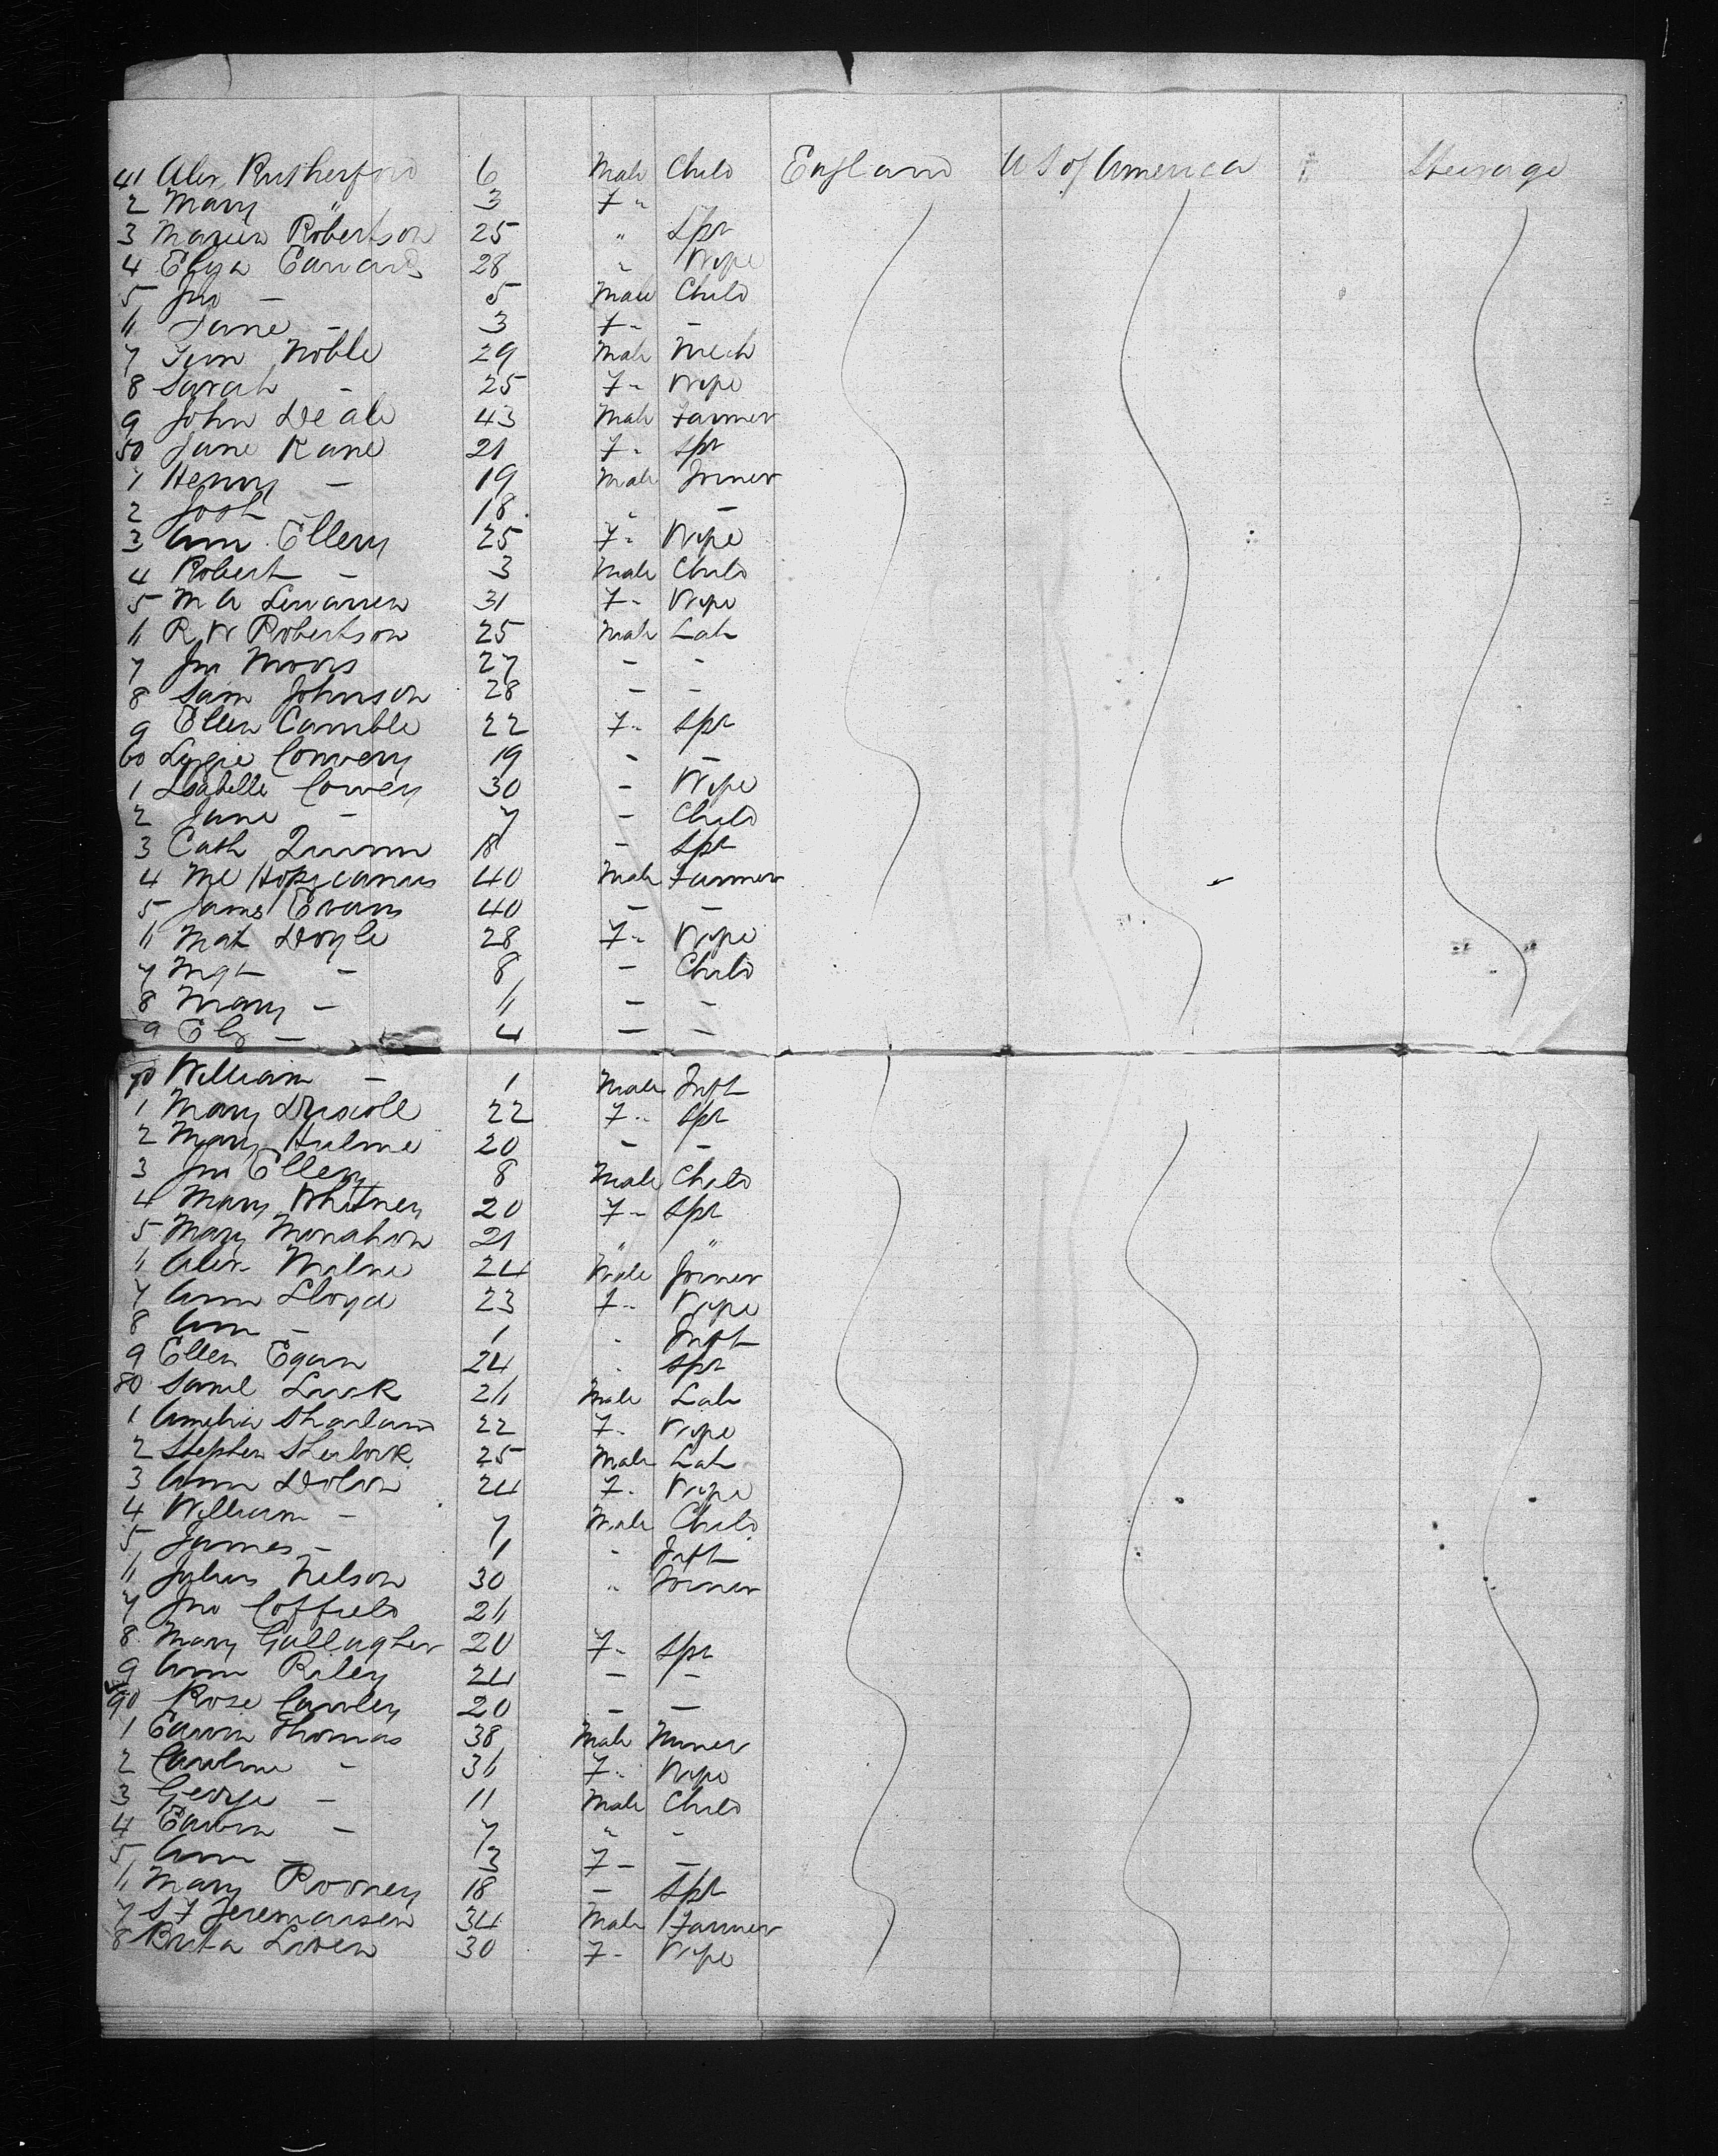 41 Alex Rutherford 6 Male Child England U S of America Steerage
2 Mary " 3 F "
3 Robertson 25 " Spr
4 Eliza Edwards 28 " Wife
5 Jno — 5 Male Child
6 Jane — 3 F " —
7 Noble 29 Male Mech
8 Sarah — 25 F " Wife
9 John Deale 43 Male Farmer
50 Jane Kane 21 F " Spr
1 Henry — 19 Male Joiner
2 Josh — 18 " —
3 Ann Ellery 25 F " Wife
4 Robert — 3 Male Child
5 M A 31 F " Wife
6 R W Robertson 25 Male Lab
7 Jno Moors 27 — —
8 Sam Johnson 28 — —
9 Ellen Camble 22 F " Spr
60 Lizzie Convery 19 — —
1 Isabella Cowey 30 — Wife
2 Jane — 7 — Child
3 Cath Quinn 18 — Spr
4 40 Male Farmer
5 James Evans 40 — —
6 Mat Doyle 28 F " Wife
7 Mgt — 8 — Child
8 Mary — 6 — —
9 Eliz — 4 — —
70 William — 1 Male Inft
1 Mary Driscoll 22 F " Spr
2 Mary Hulme 20 — —
3 Jno Ellery 8 Male Child
4 Mary Whitney 20 F " Spr
5 Mary Monahon 21 " "
6 Alex Milne 24 Male Joiner
7 Ann Lloyd 23 F " Wife
8 Ann — 1 " Inft
9 Ellen Egan 24 " Spr
80 Saml Lusk 26 Male Lab
1 Amelia Sharland 22 F " Wife
2 Stephen Sherlock 25 Male Lab
3 Ann Dolon 24 F " Wife
4 William — 7 Male Child
5 James — 1 " Inft
6 Julius Nelson 30 " Joiner
7 Jno Coffield 26
8 Mary Gallagher 20 F " Spr
9 Ann Riley 24 — —
90 Rose Cawley 20 — —
1 Edwin Thomas 38 Male Miner
2 Caroline — 36 F " Wife
3 George — 11 Male Child
4 Edwin — 7 " —
5 Ann — 3 F — —
6 Mary Rooney 18 — Spr
7 S F 34 Male Farmer
8 30 F — Wife